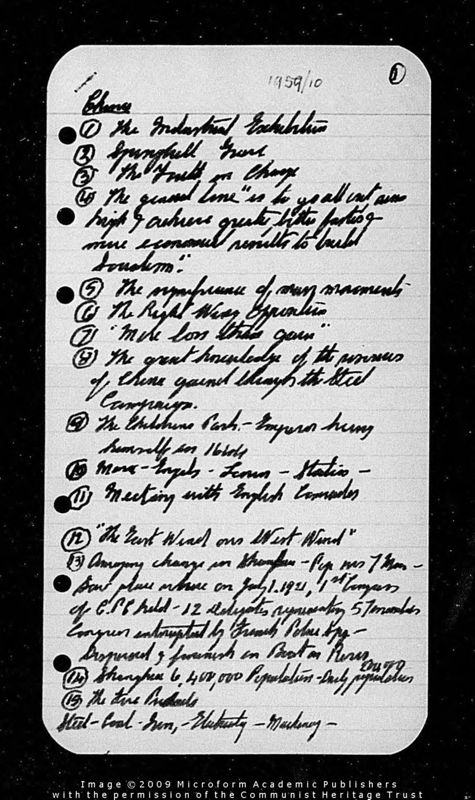 1959/10
1
China
1 The Industrial Exhibition
2 Grave
3 The Youth in Charge
4 The general line "is to go all out aim
high & achieve greater, better faster &
more economical results to build
Socialism".
5 The significance of mass movements
6 The Right Wing Opposition
7 "More loss than gain"
8 The great knowledge of the
of China gained through the Steel
Campaign.
9 The Childrens Park - Emperor hung
himself in 1644
10 Marx - Engels - Lenin - Stalin -
11 Meeting with English Comrades
12 "The East Wind over West Wind"
13 Amazing change in Shanghai - Pop over 7 Mm -
Saw place where on July 1. 1921, 1st Congress
of C.P.C held - 12 Delegates representing 57 members
Congress interrupted by French Police Spy -
Dispersed & finished in Boat on River
14 Shanghai 6,400,000 Population - Daily
15 The Five Products
Steel - Coal - Iron, - Electricity - Machinery -
Image ©2009 Microform Academic Publishers
with the permission of the Communist Heritage Trust